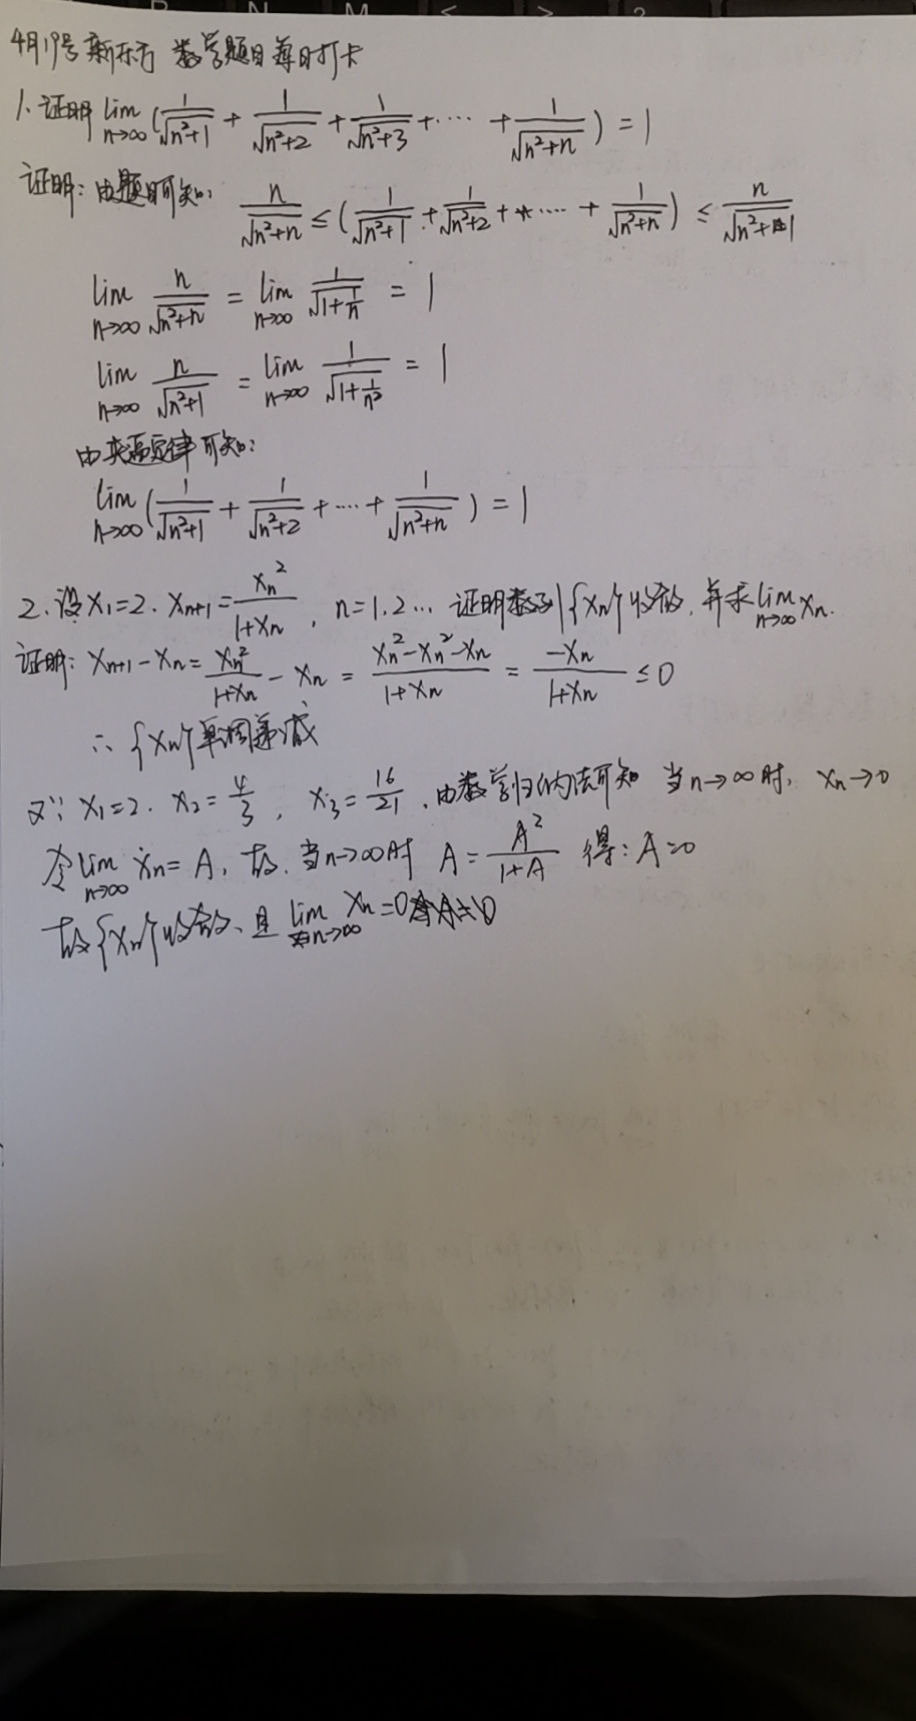 4月19号 新东方 数学题目每日打卡
1. 证明 lim n→∞ (1/√(n²+1) + 1/√(n²+2) + 1/√(n²+3) + ···· + 1/√(n²+n)) = 1
证明: 由题目可知: n/√(n²+n) ≤ (1/√(n²+1) + 1/√(n²+2) + ···· + 1/√(n²+n)) ≤ n/√(n²+1)
lim n→∞ n/√(n²+n) = lim n→∞ 1/√(1+1/n) = 1
lim n→∞ n/√(n²+1) = lim n→∞ 1/√(1+1/n²) = 1
由夹逼定律可知:
lim n→∞ (1/√(n²+1) + 1/√(n²+2) + ···· + 1/√(n²+n)) = 1
2. 设 x₁=2. xₙ₊₁ = xₙ²/(1+xₙ), n=1.2... 证明数列{xₙ}收敛, 并求 lim n→∞ xₙ.
证明: xₙ₊₁ - xₙ = xₙ²/(1+xₙ) - xₙ = (xₙ²-xₙ²-xₙ)/(1+xₙ) = -xₙ/(1+xₙ) ≤ 0
∴ {xₙ}单调递减
又∵ x₁=2. x₂=4/3, x₃=16/21, 由数学归纳法可知 当n→∞时, xₙ→0
令 lim n→∞ xₙ = A, 故. 当n→∞时 A = A²/(1+A) 得: A=0
故{xₙ}收敛、且 lim n→∞ xₙ = 0